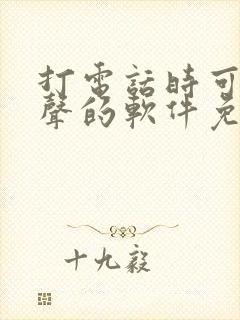 打電話時可
聲的軟件免
十九毅